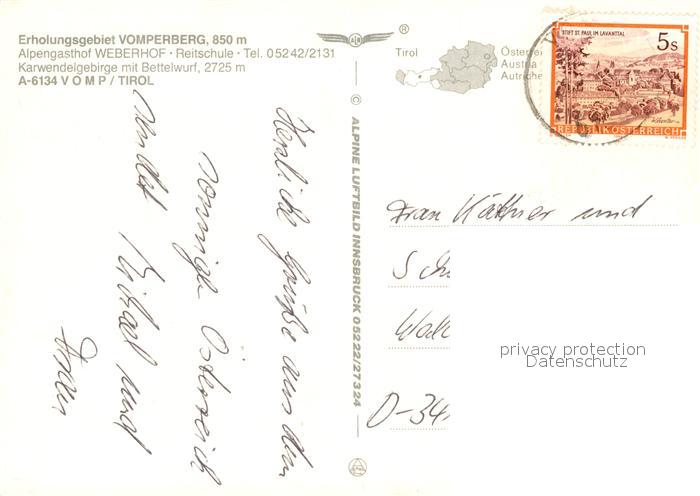 Erholungsgebiet VOMPERBERG, 850 m
Alpengasthof WEBERHOF · Reitschule · Tel. 05242/2131
Karwendelgebirge mit Bettelwurf, 2725 m
A-6134 VOMP / TIROL
®
Tirol
Österre
Austria
Autriche
STIFT ST. PAUL IM LAVANTTAL
5s
REPUBLIK ÖSTERREICH
© ALPINE LUFTBILD INNSBRUCK 05222/27324
Herzliche Grüße aus dem
sonnigen Österreich
sendet Michael und
Frau
Frau Käthner und
Sch
Wal
D-34
privacy protection
Datenschutz